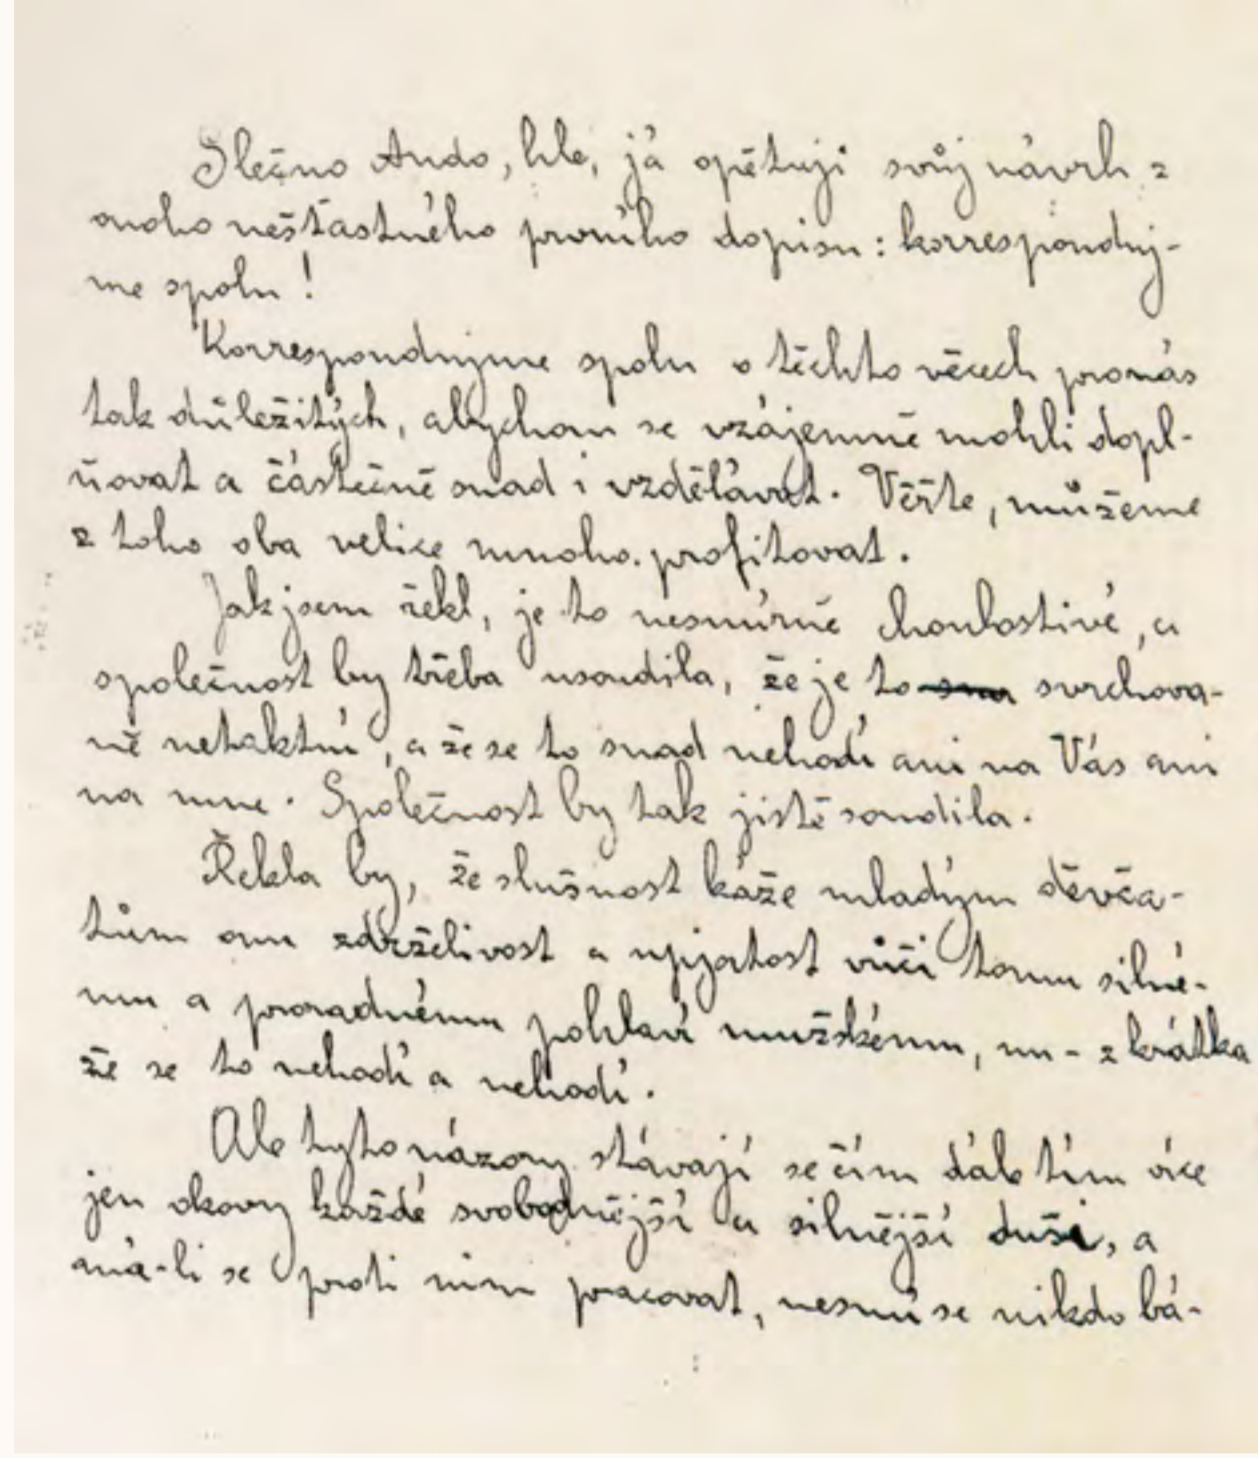 Slečno Ando, hle, já opětuji svůj návrh z
onoho nešťastného prvního dopisu: korresponduj-
me spolu!
Korrespondujme spolu o těchto věcech pro nás
tak důležitých, abychom se vzájemně mohli dopl-
ňovat a částečně snad i vzdělávat. Věřte, můžeme
z toho oba velice mnoho profitovat.
Jak jsem řekl, je to nesmírně choulostivé, a
společnost by třeba usoudila, že je to svrchova-
ně netaktní, a že se to snad nehodí ani na Vás ani
na mne. Společnost by tak jistě soudila.
Řekla by, že slušnost káže mladým děvča-
tům onu zdrželivost a upjatost vůči tomu silné-
mu a proradnému pohlaví mužskému, nu - z krátka
že se to nehodí a nehodí.
Ale tyto názory stávají se čím dále tím více
jen okovy každé svobodnější a silnější duši, a
má-li se proti nim pracovat, nesmí se nikdo bá-